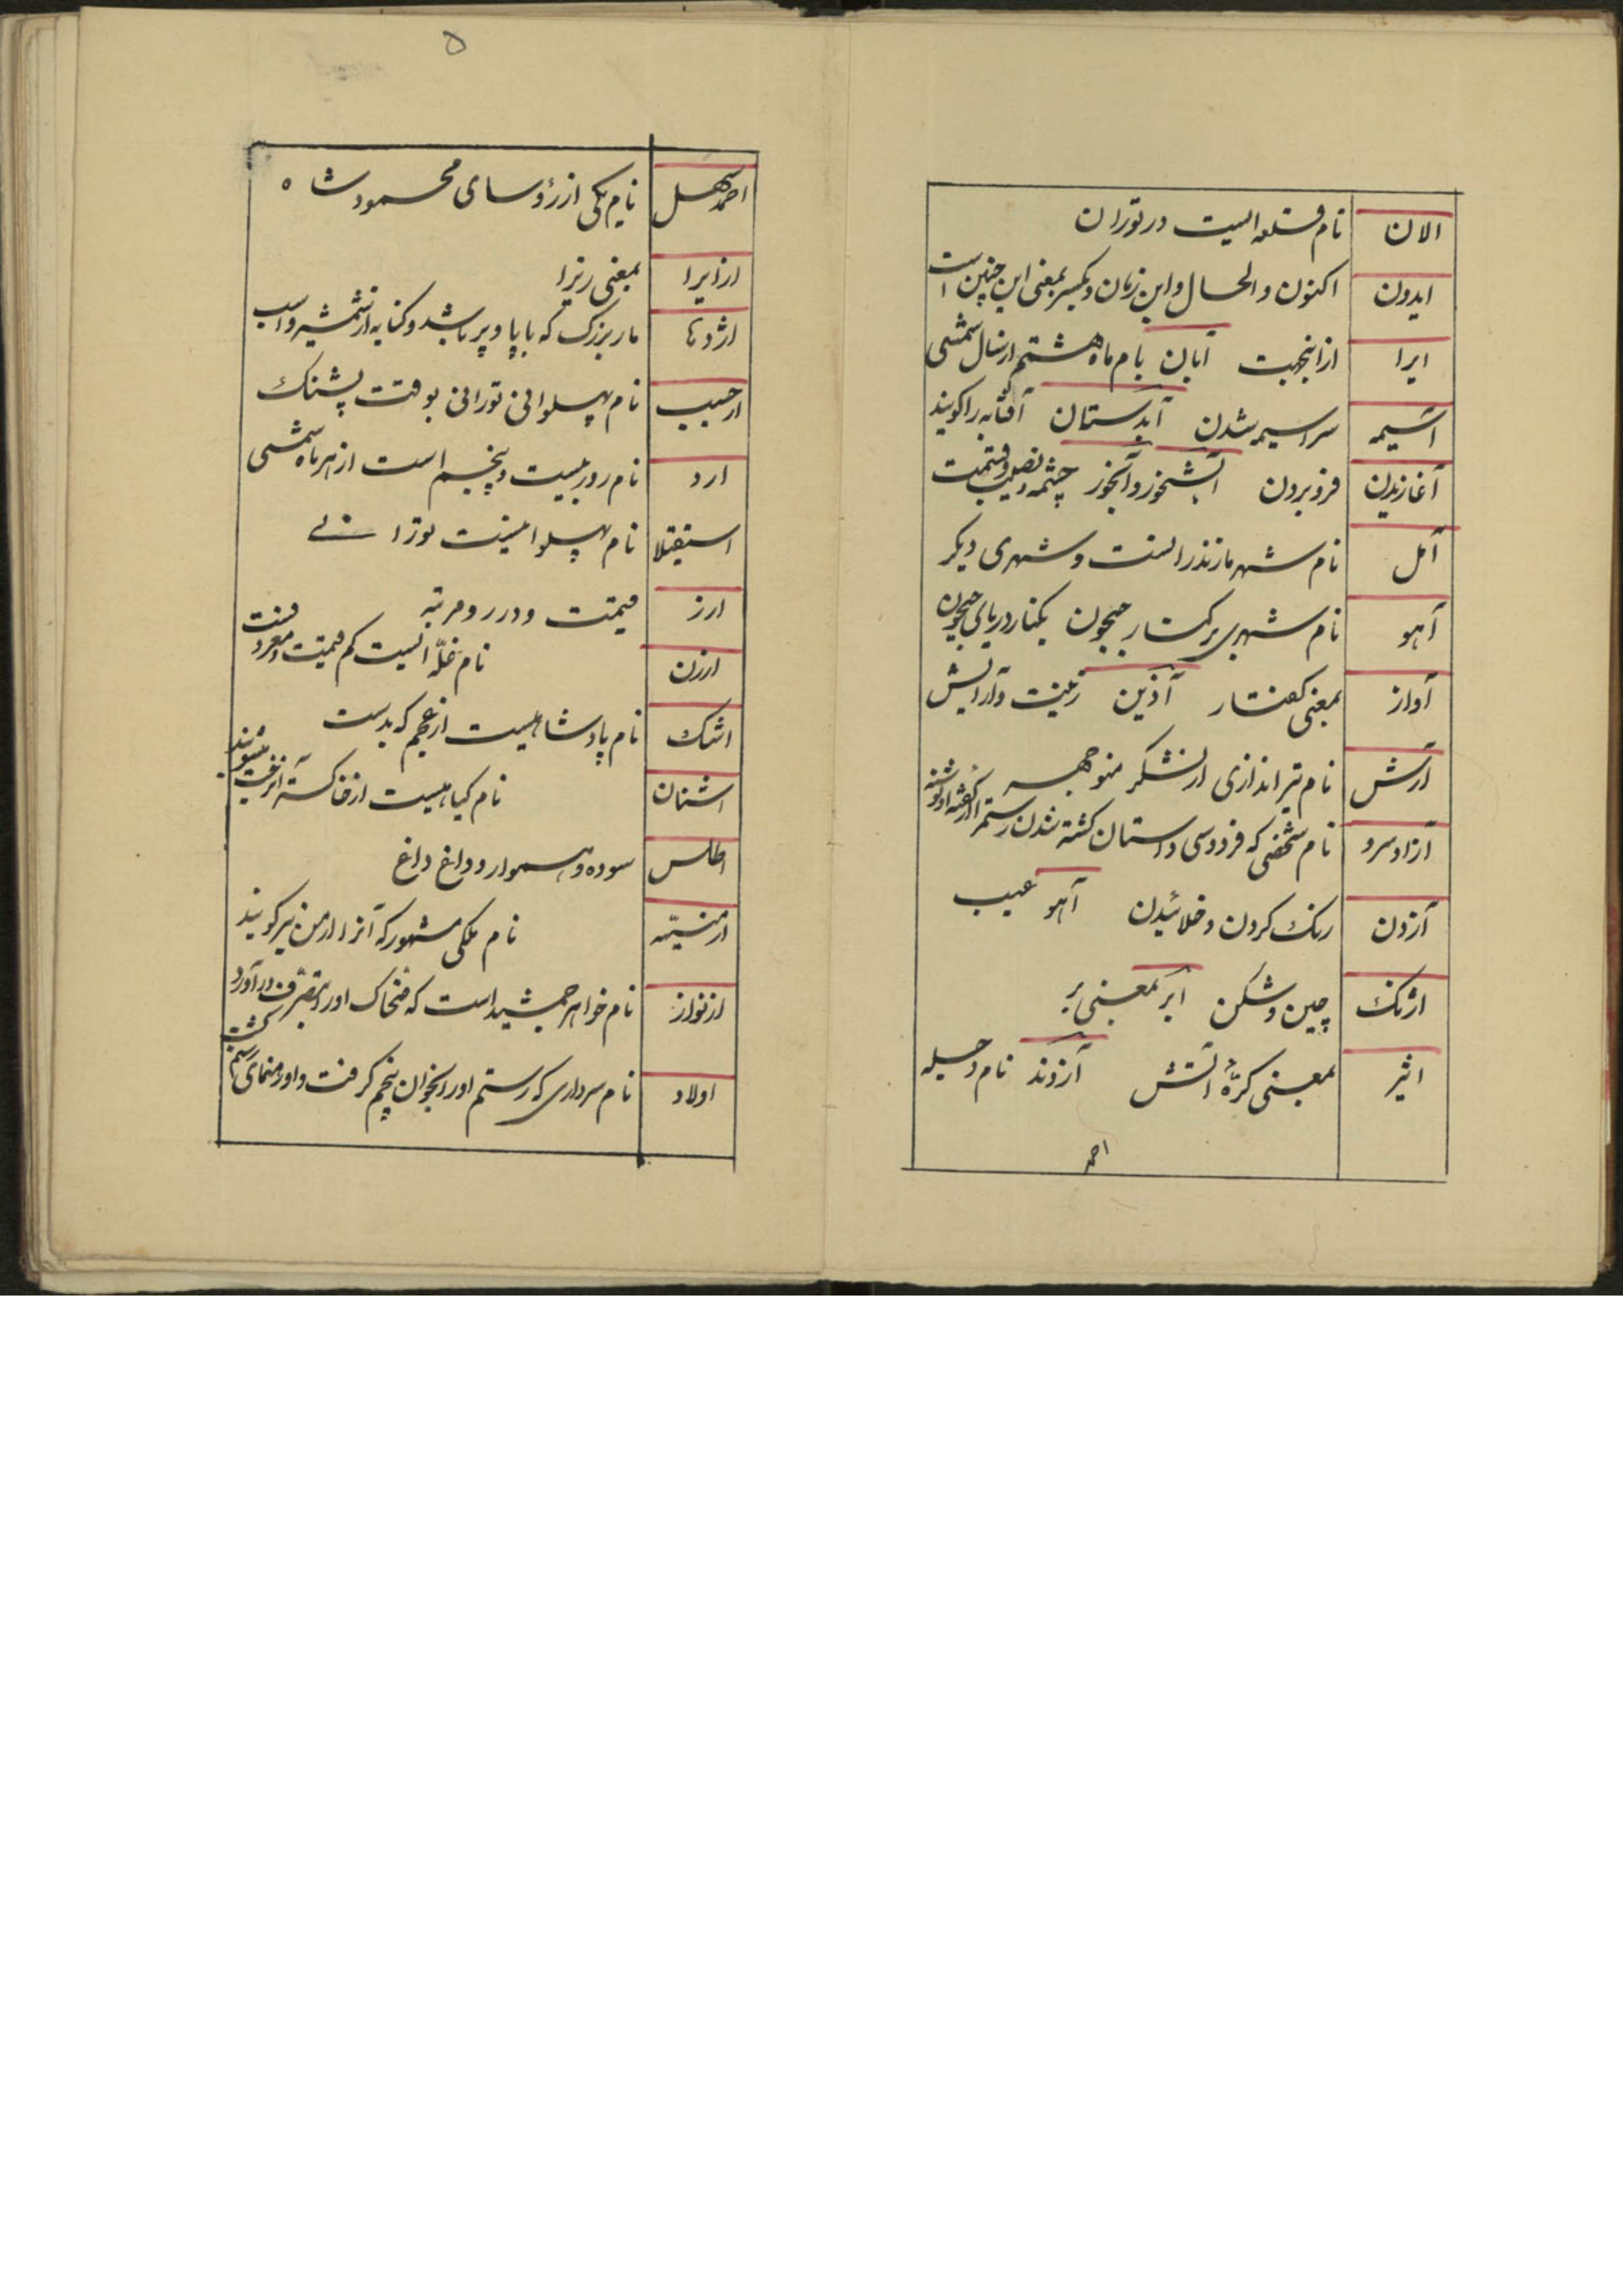 الان نام قلعه ایست در توران
ایدون اکنون والحال و این زمان و دیگر بمعنی این چنین است
ایرا از اینجهت آبان نام ماه هشتم از سال شمسی
آسیمه سراسیمه شدن آبدستان آفتابه را گویند
آغازیدن فرو بردن آبشخور و آبخور چشمه و نصیب و قسمت
آمل نام شهر مازندرانست و شهری دیگر
آهو نام شهری بر کنار جیحون بکنار دریای جیحون
آواز بمعنی گفتار آذین زینت و آرایش
آرش نام تیراندازی از لشکر منوچهر
آزاد سرو نام شخصی که فردوسی داستان کشته شدن رستم را از گفته او نوشته
آژدن رنگ کردن و خلائیدن آهو عیب
اژنگ چین و شکن ابر بمعنی بر
اثیر بمعنی کرّهٔ آتش آروند نام و حیله
احمد
۵
احمد سهل نام یکی از رؤسای محمود شاه
ازایرا بمعنی زیرا
اژدها مار بزرگ که با پا و پر باشد و کنایه از شمشیر و اسب
ارجسب نام پهلوانی تورانی بوقت پشنگ
ارد نام روز بیست و پنجم است از هر ماه شمسی
اسقیلا نام پهلوانیست تورانی
ارز قیمت و قدر و مرتبه
ارزن نام غلّه ایست کم قیمت و معروفست
اشک نام پادشاهیست از عجم که بدست
اشنان نام گیاهیست از خاکستر آن رخت میشویند
اطلس سوده و هموار و داغ داغ
ارمنیّه نام ملکی مشهور که آنرا ارمن نیز گویند
ارنواز نام خواهر جمشید است که ضحاک او را بتصرف در آورد
اولاد نام سرداری که رستم او را بخوان پنجم گرفت و او رهنمای رستم گشت